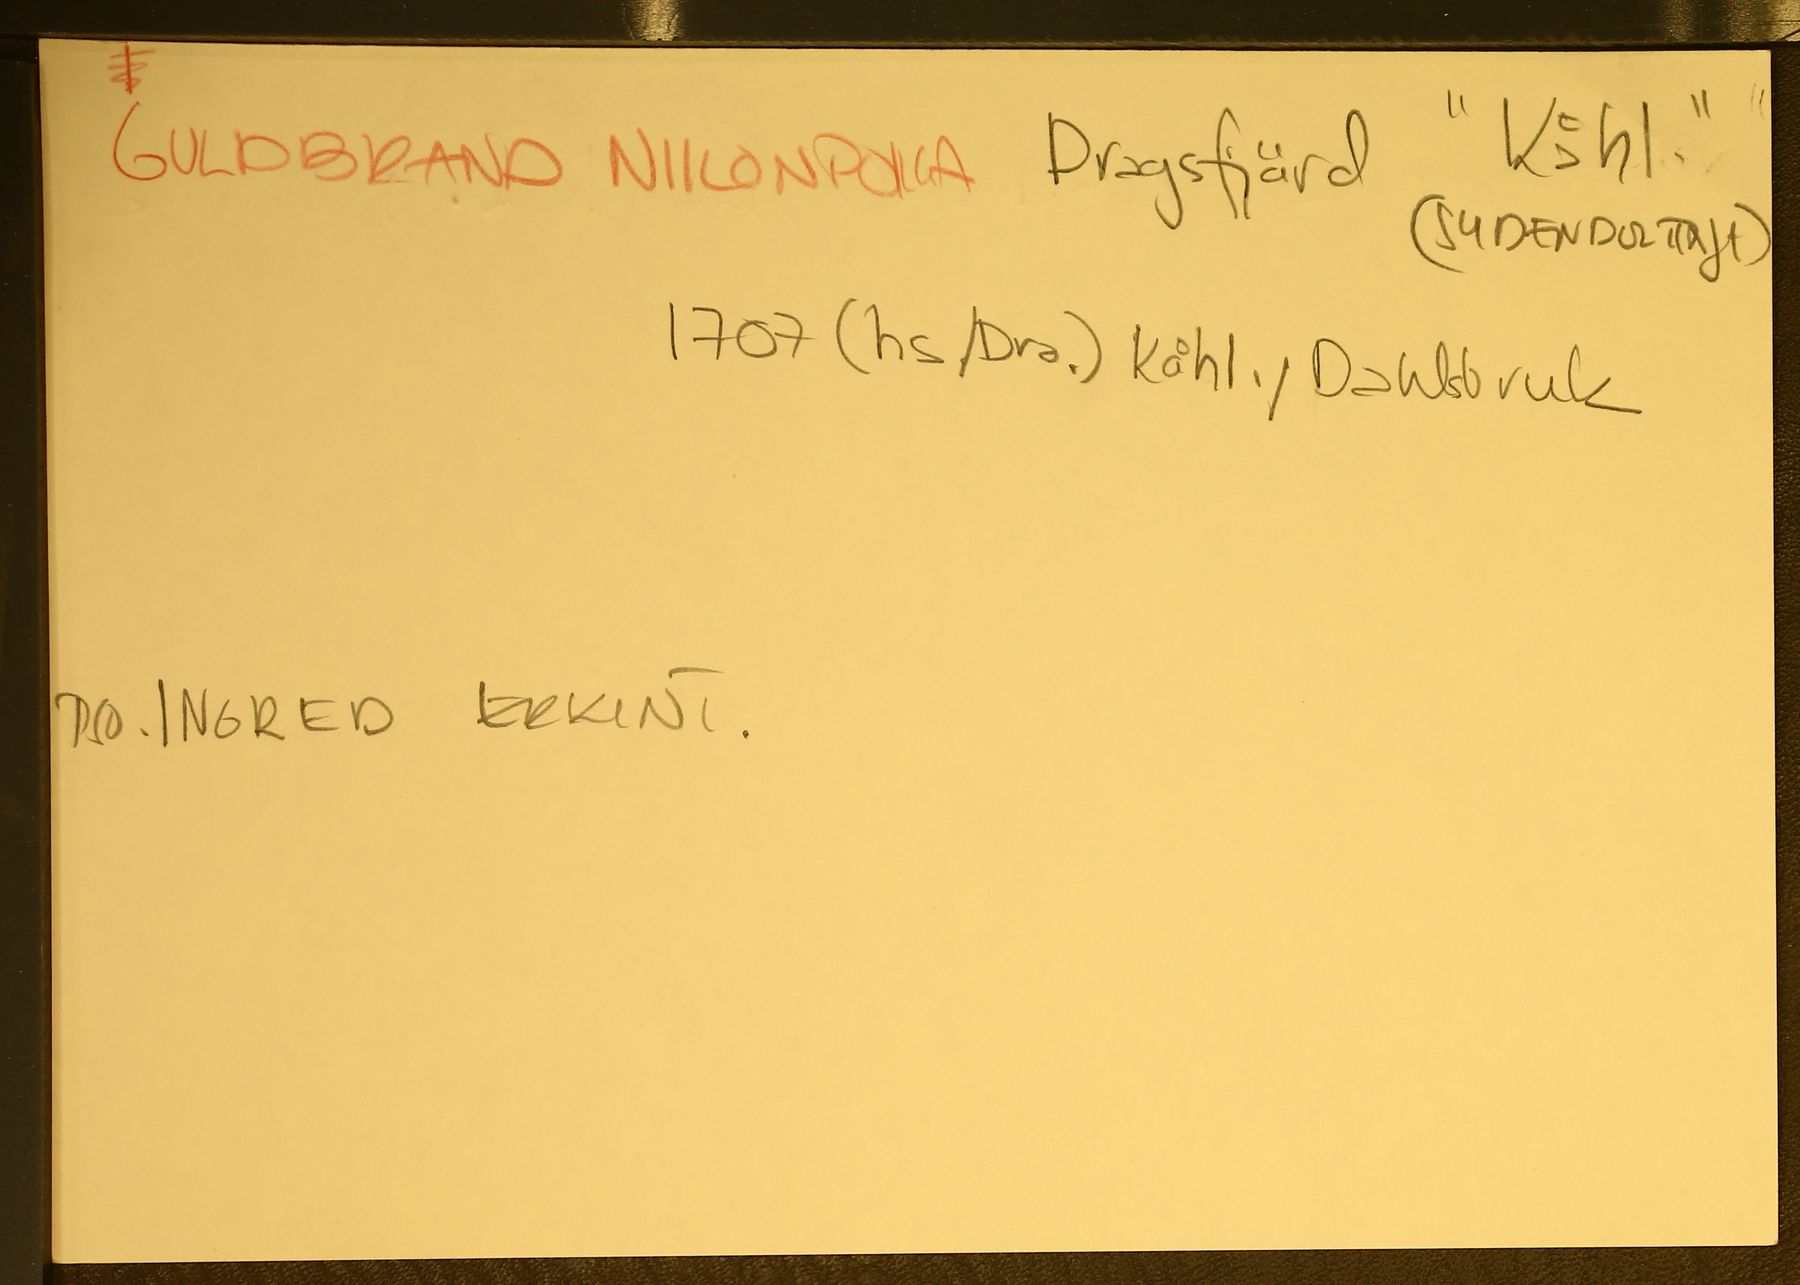 GULDBRAND NIILONPOIKA Dragsfjärd "Kåhl." "
(SYDENPOLTTAJA)
1707 (hs/Dra.) Kåhl./Dahlsbruk
PSO. INGRED ERKINT.